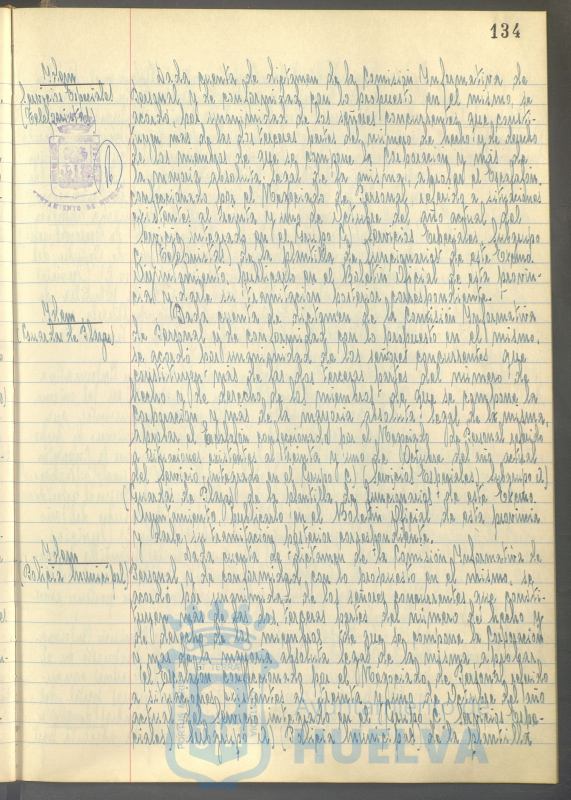 134
Idem
Servicios Especiales
(Telefonistas)
AYUNTAMIENTO DE HUELVA
Dada cuenta de dictamen de la Comisión Informativa de
Personal y de conformidad con lo propuesto en el mismo, se
acordó, por unanimidad de los señores concurrentes que consti-
tuyen más de las dos terceras partes del número de hecho y de derecho
de los miembros de que se compone la Corporación y más de
la mayoría absoluta legal de la misma, aprobar el Escalafón
confeccionado por el Negociado de Personal referido a situaciones
existentes al treinta y uno de Diciembre del año actual del
Servicio integrado en el Grupo C) Servicios Especiales, Subgrupo
de la plantilla de funcionarios de este Excmo.
Ayuntamiento, publicarlo en el Boletín Oficial de esta provin-
cia y darle su tramitación posterior correspondiente.
Idem
(Guardas de Plazas)
Dada cuenta de dictamen de la Comisión Informativa
de Personal y de conformidad con lo propuesto en el mismo,
se acordó por unanimidad de los señores concurrentes que
constituyen más de las dos terceras partes del número de
hecho y de derecho de los miembros de que se compone la
Corporación y más de la mayoría absoluta legal de la misma,
aprobar el Escalafón confeccionado por el Negociado de Personal referido
a situaciones existentes al treinta y uno de Diciembre del año actual
del Servicio integrado en el Grupo C) Servicios Especiales, Subgrupo d)
(Guardas de Plazas) de la plantilla de funcionarios de este Excmo.
Ayuntamiento, publicarlo en el Boletín Oficial de esta provincia
y darle su tramitación posterior correspondiente.
Idem
(Policía Municipal)
Dada cuenta de dictamen de la Comisión Informativa de
Personal y de conformidad, con lo propuesto en el mismo, se
acordó por unanimidad de los señores concurrentes que consti-
tuyen más de las dos terceras partes del número de hecho y
de derecho de los miembros de que se compone la Corporación
y más de la mayoría absoluta legal de la misma, aprobar
el Escalafón confeccionado por el Negociado de Personal referido
a situaciones existentes al treinta y uno de Diciembre del año
actual del Servicio integrado en el Grupo C) Servicios Espe-
ciales, Subgrupo (Policía Municipal) de la plantilla
HUELVA